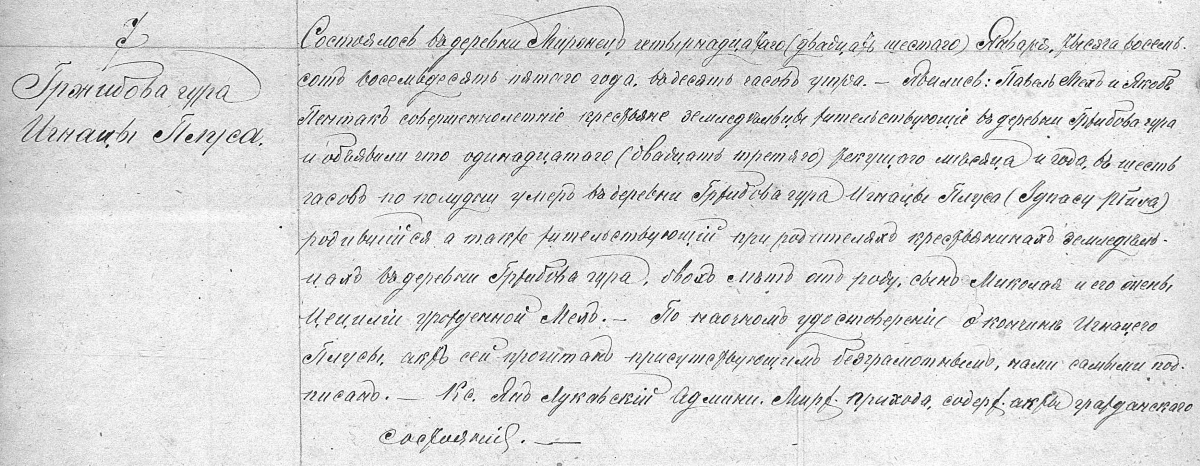 7
Гржибова гура
Игнацы Плуса.
Состоялось въ деревни Миржецъ четырнадцатаго (двадцать шестаго) Января, тысяча восемь-
сотъ восемьдесятъ пятаго года, въ десять часовъ утра. — Явились: Павелъ Мехъ и Якобъ
Пентакъ совершеннолетніе крестьяне земледельцы жительствующіе въ деревни Гржибова гура
и объявили что одинадцатаго (двадцать третяго) текущаго месяца и года, въ шесть
часовъ по полудни умеръ въ деревни Гржибова гура Игнацы Плуса (Ignacy Plusa)
родившійся а также жительствующій при родителяхъ крестьянинахъ земледель-
цахъ въ деревни Гржибова гура, двохъ летъ отъ роду, сынъ Миколая и его жены
Цециліи урожденной Мехъ. — По наочномъ удостовереніе о кончине Игнацего
Плусы, актъ сей прочитанъ присутствующимъ безграмотнымъ, нами самыми под-
писанъ. — Кс. Янъ Луковскій Админи. Мирж. прихода, содерж. акты гражданскаго
состоянія. —